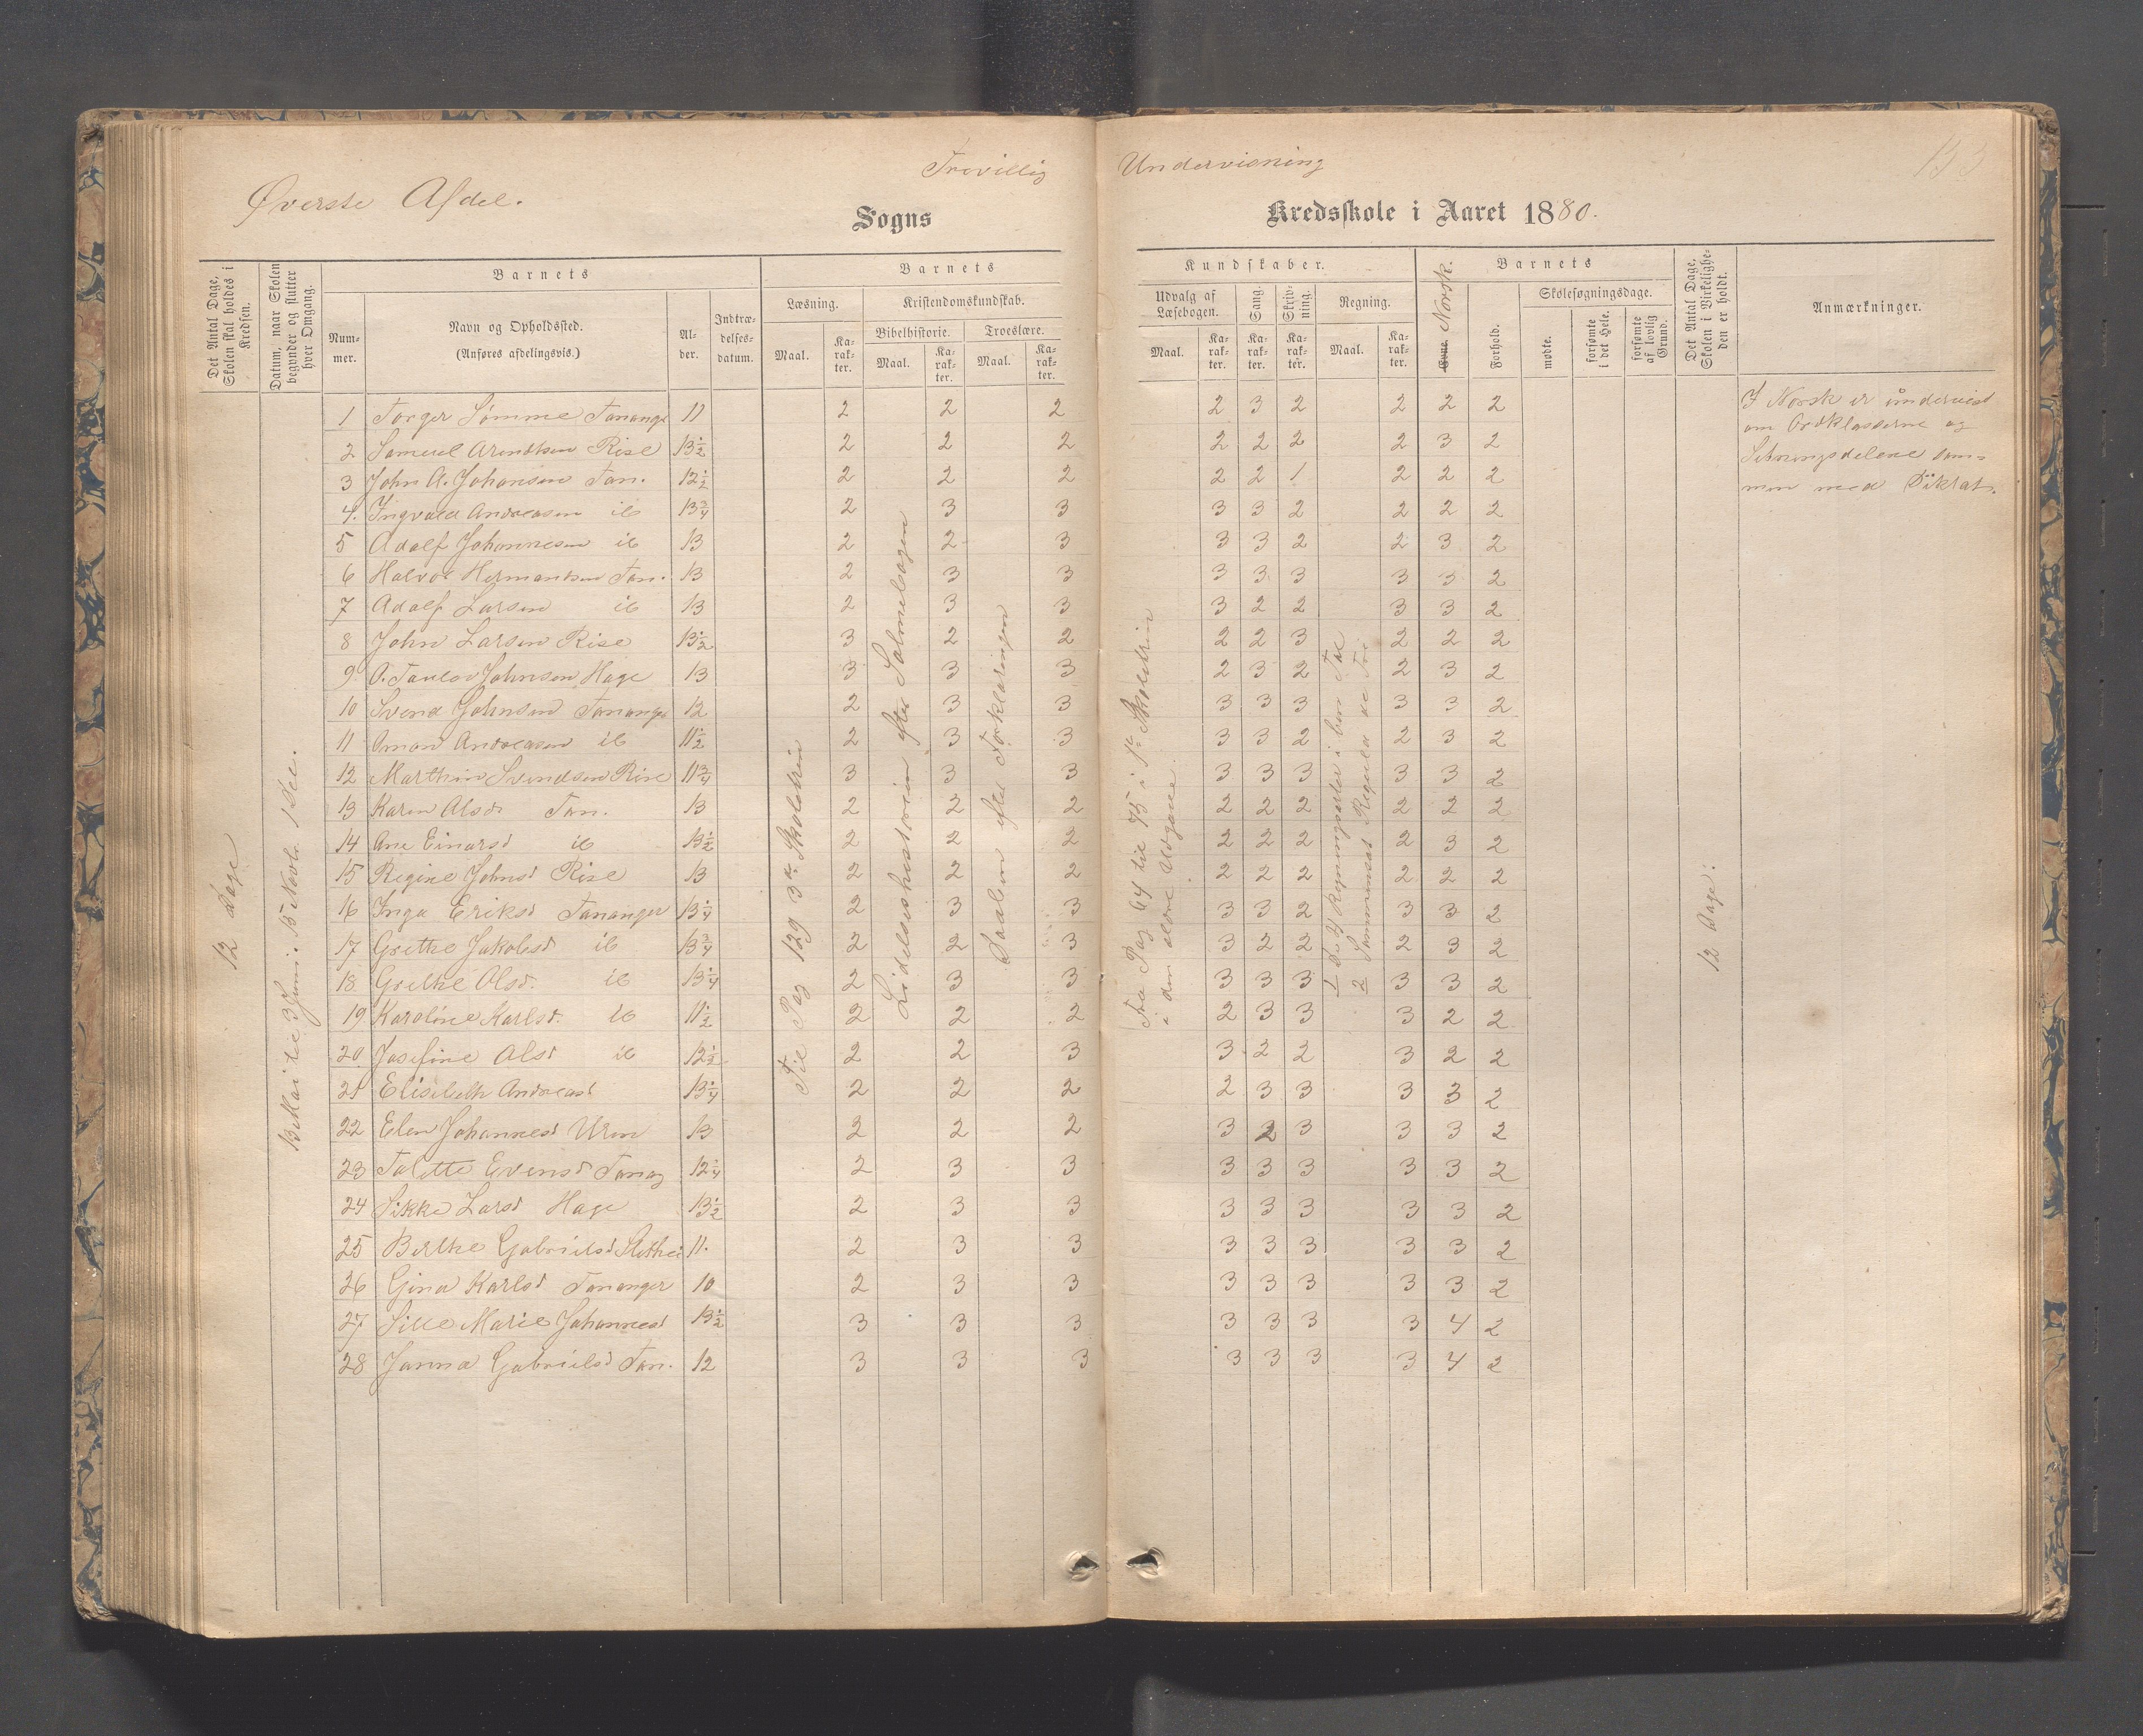 Frivillig Undervisning
133
Øverste Afdel.
Sogns
Kredsskole i Aaret 1880.
Det Antal Dage, Skolen skal holdes i Kredsen.
Datum, naar Skolen begynder og slutter hver Omgang.
Barnets
Nummer.
Navn og Opholdssted.
(Anføres afdelingsvis.)
Alder.
Indtrædelsesdatum.
Barnets
Læsning.
Kristendomskundskab.
Bibelhistorie.
Troeslære.
Maal.
Karakter.
Maal.
Karakter.
Maal.
Karakter.
Kundskaber.
Udvalg af Læsebogen.
Sang.
Skrivning.
Regning.
Maal.
Karakter.
Karakter.
Karakter.
Maal.
Karakter.
Evne. Norsk.
Barnets
Forhold.
Skolesøgningsdage.
mødte.
forsømte i det Hele.
forsømte af lovlig Grund.
Det Antal Dage, Skolen i Virkeligheden er holdt.
Anmærkninger.
12 Dage
13 Mai til 3 Juni. 15 Novb. 1 Dec.
Til Pag 129 3die Skoletrin
Lidelseshistorien efter Salmelsagen
efter Forklaringen
Fra Pag 64 til 75 i 1ste Skoletrin
i den ældre Udgave.
12 Dage.
I Norsk er undervist
om Ordklasserne og
Sætningsdelene sam=
men med Diktat.
1 Torger Sømme Tananger 11 2 2 2 2 3 2 2 2 2
2 Samuel Arentsen Rise 13½ 2 2 2 2 2 2 2 3 2
3 John A. Johansen Tan. 12½ 2 2 2 2 2 1 2 2 2
4. Ingvald Andreasen ib 13¾ 2 3 3 3 3 2 2 2 2
5 Adolf Johannesen ib 13 2 2 3 3 3 2 2 3 2
6 Halvor Hermansen Tan. 13 2 3 3 3 3 3 3 3 2
7 Adolf Larsen ib 13 2 3 3 3 2 2 3 3 2
8 John Larsen Rise 13½ 3 2 2 2 2 3 2 2 2
9 O. Taulov Johnsen Hage 13 3 3 3 2 3 2 2 3 2
10 Svend Johnsen Tananger 12 2 3 3 3 3 3 3 3 2
11 Oman Andreasen ib 11½ 2 3 3 3 3 2 2 3 2
12 Marthin Svendsen Rise 11¾ 3 3 3 3 3 3 3 3 2
13 Karen Olsd Tan. 13 2 2 2 2 2 2 2 2 2
14 Ane Einarsd ib 13½ 2 2 2 2 2 2 2 3 2
15 Regine Johnsd Rise 13 2 2 2 2 2 2 2 2 2
16 Inga Eriksd Tananger 13¼ 2 3 3 3 3 2 3 3 2
17 Grethe Jakobsd ib 13¾ 2 2 3 3 2 2 2 3 2
18 Grethe Olsd. ib 13¼ 2 3 3 3 3 3 3 3 2
19 Karoline Karlsd. ib 11½ 2 2 2 2 3 3 3 2 2
20 Josefine Olsd ib 12½ 2 2 3 3 2 2 3 2 2
21 Elisebeth Andreasd 13¼ 2 2 2 2 3 3 3 3 2
22 Elen Johannesd Uren 13 2 2 2 3 2 3 3 3 2
23 Talette Evensd Tanag 12¼ 2 3 3 3 3 3 3 3 2
24 Sikke Larsd Hage 13½ 2 3 3 3 3 3 3 3 2
25 Berthe Gabrielsd 11. 2 3 3 3 3 3 3 3 2
26 Gina Karlsd Tananger 10 2 3 3 3 3 3 3 3 2
27 Sille Marie Johannesd 13½ 3 3 3 3 3 3 3 4 2
28 Janna Gabrielsd Tan. 12 3 3 3 3 3 3 3 4 2